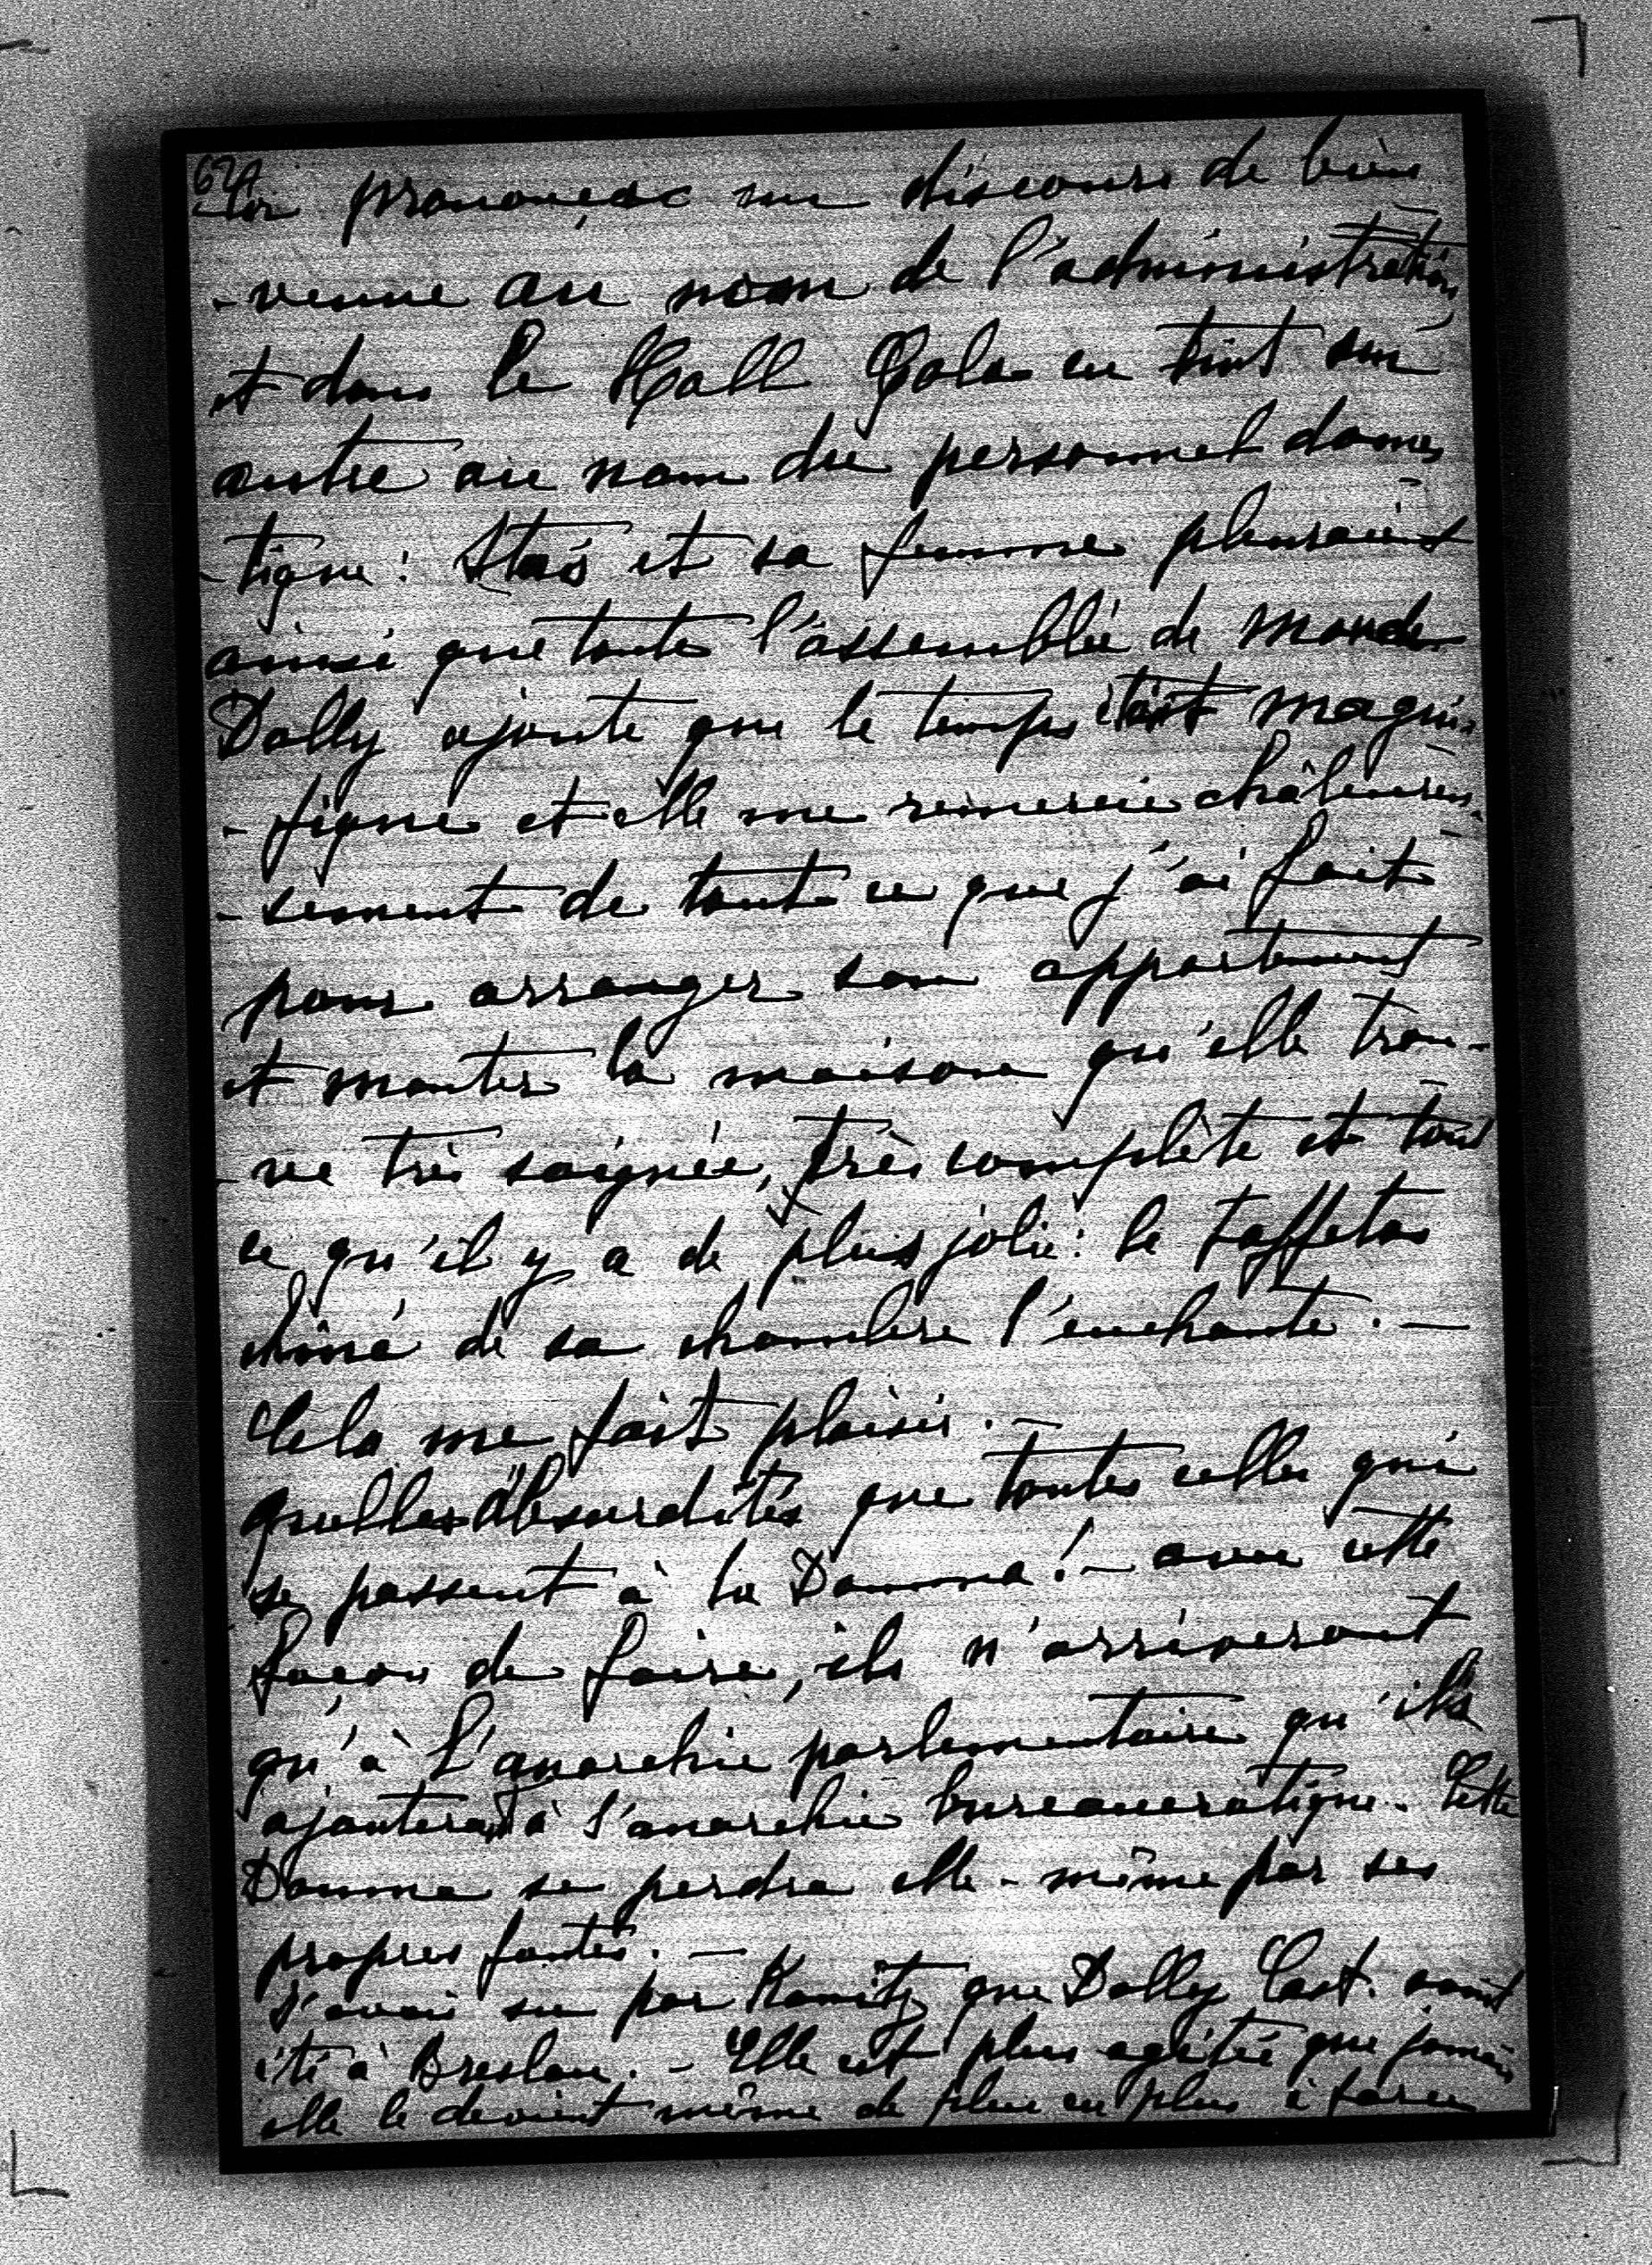 prononça un discours de bien
-venue au nom de l'administration
et dans le Hall Gola en tint un
autre au nom du personnel domes
-tique : Stas et sa femme pleuraient
ainsi que toute l'assemblée de monde
Dolly ajoute que le temps était magni-
-fique et elle me remercie châleureu-
-sement de tout ce que j'ai fait
pour arranger son appartement
et monter la maison qu'elle trou-
-ve très soignée, très complète et tout
ce qu'il y a de plus joli : le taffetas
chiné de sa chambre l'enchante. —
Cela me fait plaisir. —
quelles absurdités que toutes celles qui
se passent à la Douma ! — avec cette
façon de faire, ils n'arriveront
qu'à l'anarchie parlementaire qu'ils
ajouteront à l'anarchie bureaucratique. Cette
Douma se perdra elle-même par ses
propres fautes. —
J'avais su par Kanitz que Dolly Cast. avait
été à Breslau. — Elle est plus agitée que jamais
elle le devient même de plus en plus à force